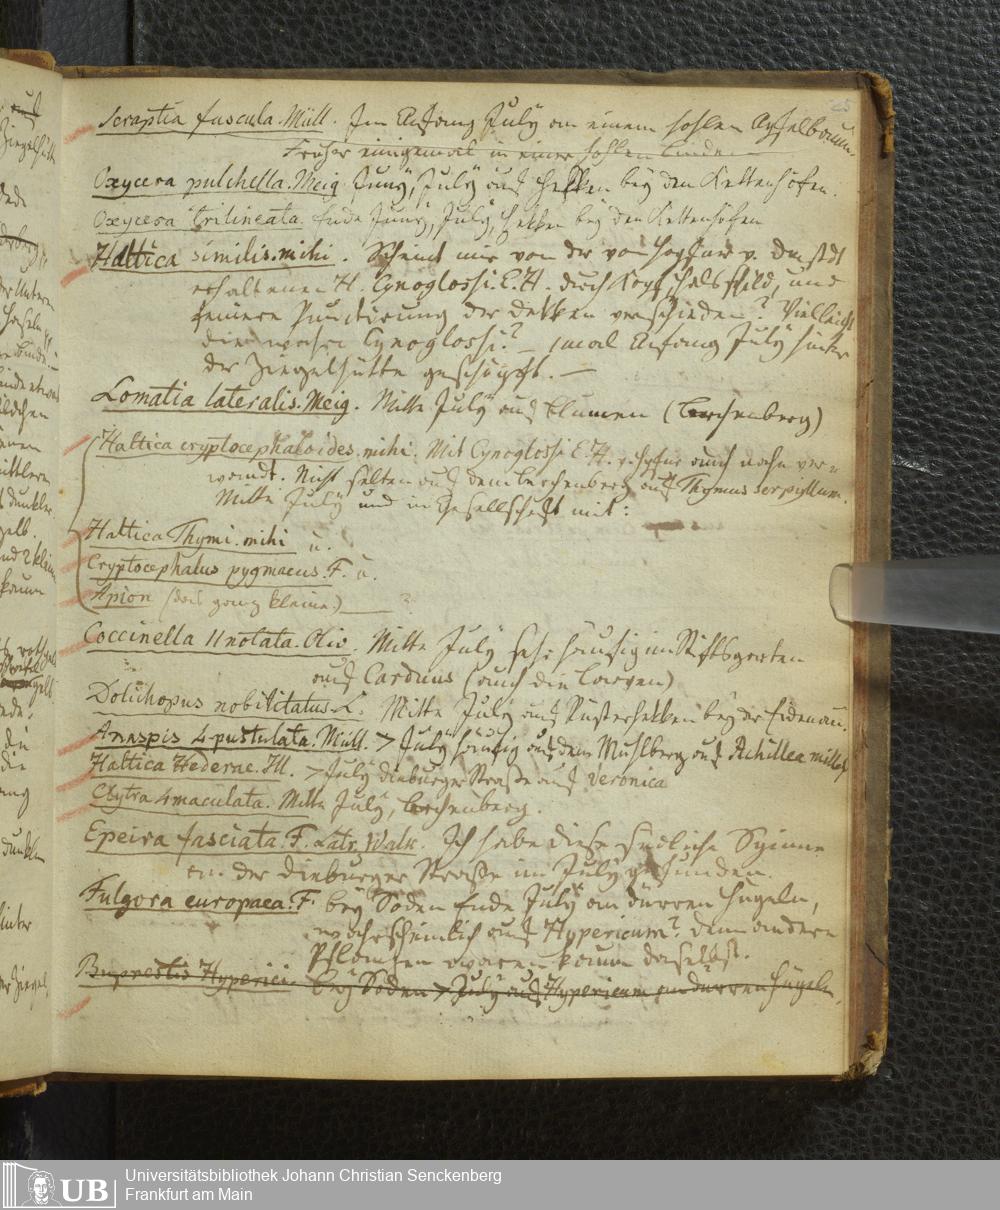 25
Scraptia fuscula. Müll. Im Anfang July an einem hohlen Apfelbaum.
Früher einigemal in einer hohlen Linde. —
Oxycera pulchella. Meig Juny, July auf Hekken bey den Kettenhöfen.
Oxycera trilineata. Ende Juny, July, Hekken bey den Kettenhöfen
Haltica similis. mihi. Scheint mir von der von
erhaltenen H. Cynoglossi. E. H. durch Kopf, Halsschild, und
feinere Punctirung der Dekken verschieden? Vielleicht
die wahre Cynoglossi? — 1 mal Anfang July hinter
der Ziegelhütte geschöpft. —
Lomatia lateralis. Meig. Mitte July auf Blumen (Lerchenberg)
Haltica cryptocephaloides. mihi. Mit Cynoglossi E. H. auch nahe ver=
wandt. Nicht selten auf dem Lerchenberg auf Thymus serpyllum.
Mitte July und in Gesellschaft mit:
Haltica Thymi. mihi u.
Cryptocephalus pygmaeus. F. u.
Apion (das ganz kleine) — ?
Coccinella 11notata. Oliv. Mitte July sehr häufig im Stiftsgarten
auf Carduus (auch die Larven)
Dolichopus nobilitatus. L. Mitte July auf bey der
Anaspis 4-pustulata. Müll. > July häufig auf dem Mühlberg auf Achillea millef
Haltica Hederae. Ill. > July Dieburger Straße auf Veronica
Clytra 4maculata. Mitte July, Lerchenberg.
Epeira fasciata. F. Latr. Walk. Ich habe diese südliche Spinne
an der Dieburger Straße im July gefunden.
Fulgora europaea. F. bey Soden Ende July an dürren Hügeln,
wahrscheinlich auf Hypericum? denn andere
Pflanzen waren kaum daselbst.
Buprestis Hyperici. bey Soden > July auf Hypericum an dürren Hügeln.
UB
Universitätsbibliothek Johann Christian Senckenberg
Frankfurt am Main